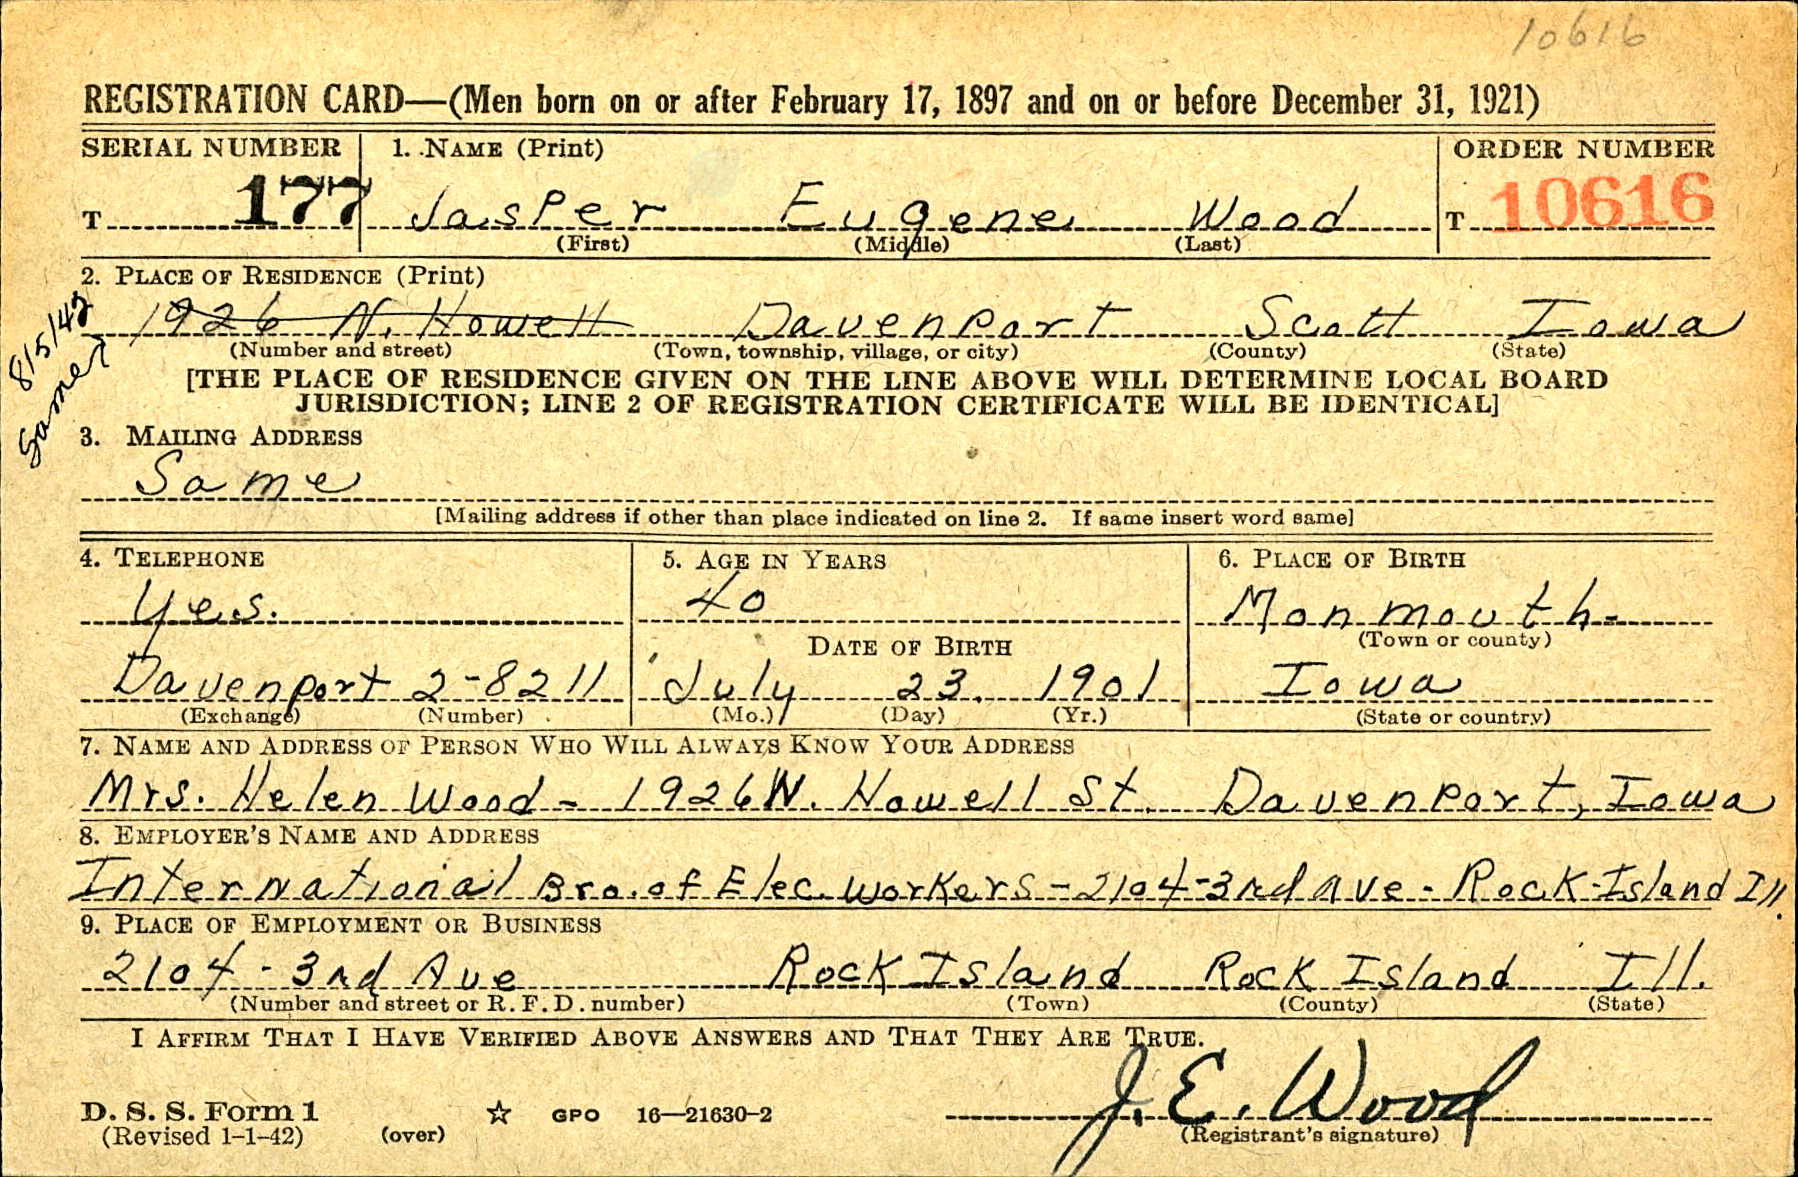 10616
REGISTRATION CARD—(Men born on or after February 17, 1897 and on or before December 31, 1921)
SERIAL NUMBER 1. NAME (Print) ORDER NUMBER
T 177 Jasper Eugene Wood T 10616
(First) (Middle) (Last)
2. PLACE OF RESIDENCE (Print)
1926 N. Howell Davenport Scott Iowa
(Number and street) (Town, township, village, or city) (County) (State)
8/5/42
[THE PLACE OF RESIDENCE GIVEN ON THE LINE ABOVE WILL DETERMINE LOCAL BOARD
JURISDICTION; LINE 2 OF REGISTRATION CERTIFICATE WILL BE IDENTICAL]
3. MAILING ADDRESS
Same
[Mailing address if other than place indicated on line 2. If same insert word same]
4. TELEPHONE 5. AGE IN YEARS 6. PLACE OF BIRTH
Yes. 40 Monmouth-
DATE OF BIRTH (Town or county)
Davenport 2-8211 July 23, 1901 Iowa
(Exchange) (Number) (Mo.) (Day) (Yr.) (State or country)
7. NAME AND ADDRESS OF PERSON WHO WILL ALWAYS KNOW YOUR ADDRESS
Mrs. Helen Wood - 1926 N. Howell St. Davenport, Iowa
8. EMPLOYER'S NAME AND ADDRESS
International Bro. of Elec. Workers - 2104-3rd Ave - Rock-Island Ill.
9. PLACE OF EMPLOYMENT OR BUSINESS
2104 - 3rd Ave Rock Island Rock Island Ill.
(Number and street or R. F. D. number) (Town) (County) (State)
I AFFIRM THAT I HAVE VERIFIED ABOVE ANSWERS AND THAT THEY ARE TRUE.
J. E. Wood
D. S. S. Form 1
(Revised 1-1-42) (over) ☆ GPO 16—21630-2 (Registrant's signature)